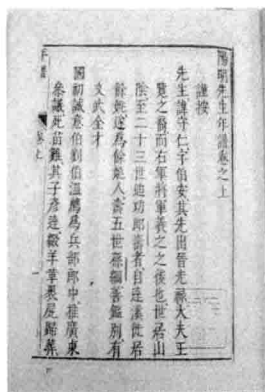 陽明先生年譜卷之上
謹按
先生諱守仁字伯安其先出晉光祿大夫王
覽之裔而右軍將軍羲之之後也世居山
陰至二十三世迪功郎壽者自達溪徙居
餘姚遂為餘姚人壽五世孫綱善鑑別有
文武全才
國初誠意伯劉伯溫薦為兵部郎中推廣東
參議死苗難其子彥達綴羊革裹屍歸葬
年譜
卷上